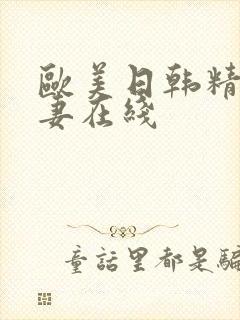 歐美日韩精
妻在綫
童話里都是騙